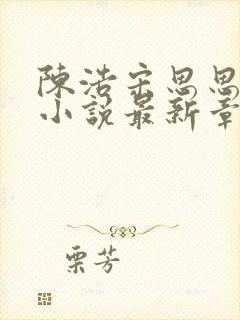 陳浩宋思思
小說最新章
栗芳